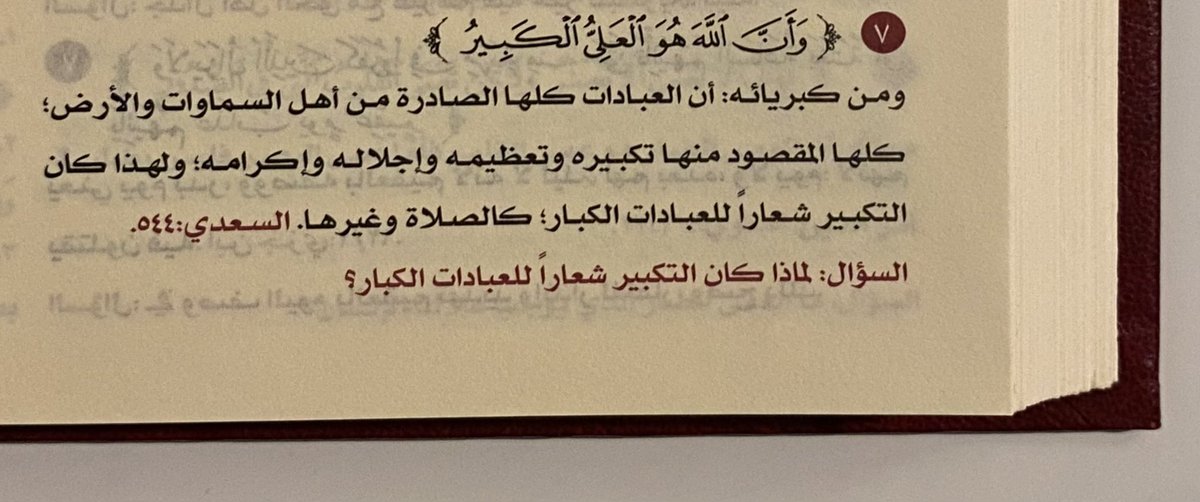 ٧ ﴿ وَأَنَّ ٱللَّهَ هُوَ ٱلْعَلِىُّ ٱلْكَبِيرُ ﴾
ومن كبريائه: أن العبادات كلها الصادرة من أهل السماوات والأرض؛
كلها المقصود منها تكبيره وتعظيمه وإجلاله وإكرامه؛ ولهذا كان
التكبير شعاراً للعبادات الكبار؛ كالصلاة وغيرها. السعدي:٥٤٤.
السؤال: لماذا كان التكبير شعاراً للعبادات الكبار؟